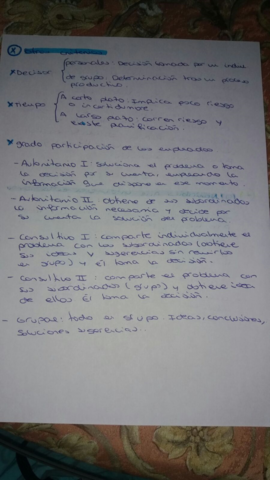 * Decisor { personales: decisión tomada por un individuo
de grupo: Determinación tras un proceso
productivo.
* tiempo { A corto plazo: Implica poco riesgo
o incertidumbre
A largo plazo: corren riesgo y
existe planificación.
* grado participación de los empleados
- Autoritario I: soluciona el problema o toma
la decisión por su cuenta, empleando la
información que dispone en ese momento
- Autoritario II: obtiene de sus subordinados
la información necesaria y decide por
su cuenta la solución del problema.
- Consultivo I: comparte individualmente el
problema con los subordinados (obtiene
sus ideas y sugerencias sin reunirlos
en grupo) y él toma la decisión.
- Consultivo II: comparte el problema con
sus subordinados (grupo) y obtiene ideas
de ellos. Él toma la decisión.
- Grupal: todo en grupo. Ideas, conclusiones,
soluciones sugerencias...